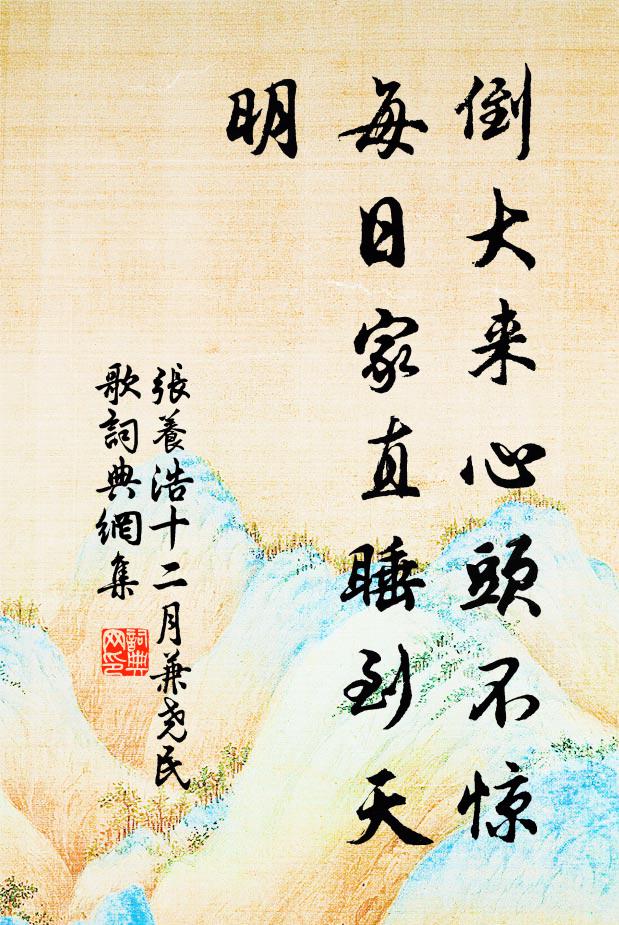 倒大来心頭不惊
每日家直睡到天
明
張養浩十二月兼尧民
歌詞典網集
詞典
网印